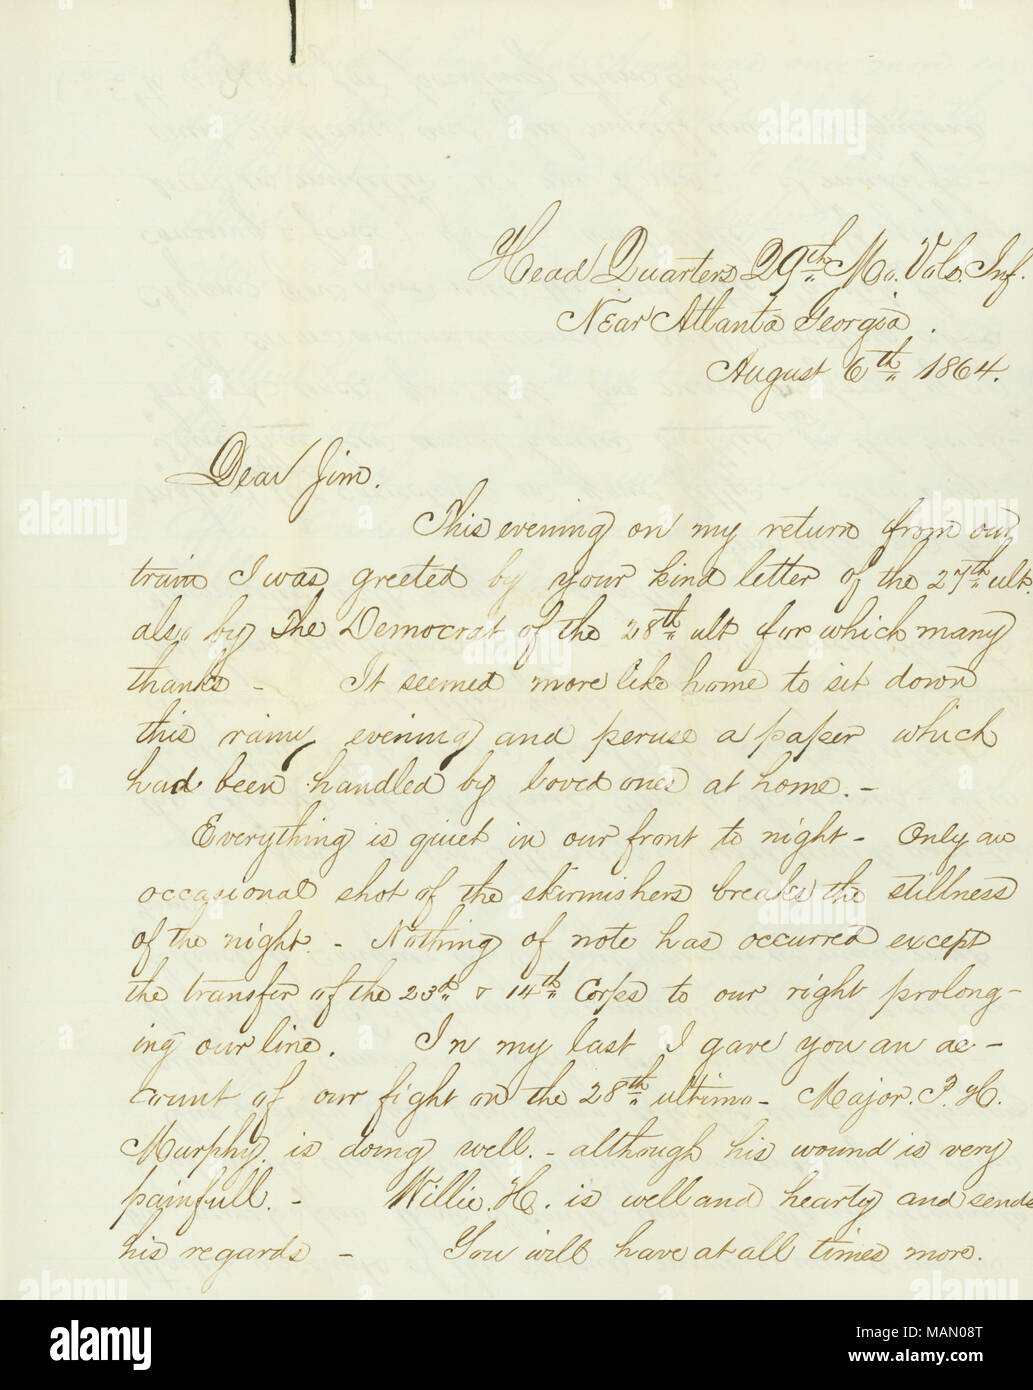 Head Quarters 29th Mo. Vols. Inf.
Near Atlanta Georgia.
August 6th 1864.
Dear Jim.
This evening on my return from our
train I was greeted by your kind letter of the 27th ult.
also by The Democrat of the 28th ult for which many
thanks - It seemed more like home to sit down
this rainy evening and peruse a paper which
had been handled by loved ones at home. -
Everything is quiet in our front to night - Only an
occasional shot of the skirmishers breaks the stillness
of the night. - Nothing of note has occurred except
the transfer of the 23d & 14th Corps to our right prolong-
ing our line. In my last I gave you an ac-
count of our fight on the 28th ultimo - Major. P. H.
Murphy. is doing well. - although his wound is very
painfull. - Willie. H. is well and hearty and sends
his regards - You will have at all times more.
alamy
a
alamy
Image ID: MAN08T
www.alamy.com